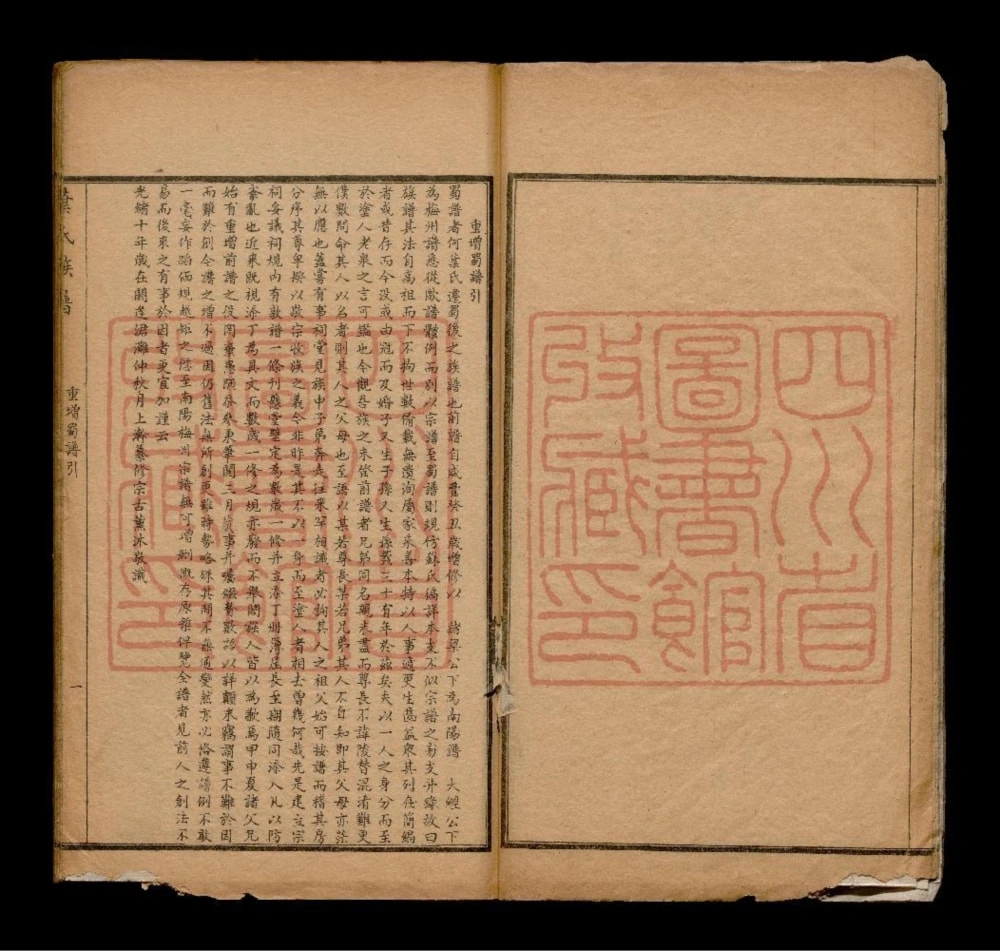 四川省
圖書館
收藏印
重增蜀譜引
蜀譜者何葉氏遷蜀後之族譜也前譜自咸豐癸丑歲增修以 諸梁公下為南陽譜 大經公下
為梅州譜悉從歐譜體例而別以宗譜至蜀譜則規仿蘇氏偏詳本支不似宗譜之易支分緣故曰
族譜其法自高祖而下不拘世數備載無遺洵屬家乘善本特以人事遞更生齒益衆其列在簡編
者或昔存而今没或由冠而及婚子又生子孫又生孫蓋三十有年於茲矣夫以一人之身分而至
於塗人老泉之言可鑑也今觀吾族之未管前譜者兄弟同名親未盡而尊長不諱陵替混淆難更
僕數問命其人以名者則其人之父母也至語以某若尊長某若兄弟其人不自知即其父母亦茫
無以應也蓋嘗有事祠堂見族中子弟奔走往來罕相識者必詢其人之祖父始可按譜而稽其房
分序其尊卑揆以敬宗收族之義今非昨是其不以一身而至塗人者相去曾幾何哉先是建立宗
祠妥議祠規內有敦譜一條刊懸堂壁定為數歲一修并立添丁冊簿屆長至期隨同添入凡以防
紊亂也近來既視添丁為具文而數歲一修之規亦廢而不舉闔族人皆以為歉焉甲申夏諸父兄
始有重增前譜之役
而難於創今譜之增不過因仍舊法無所創更雖時勢略殊其間不無通變然亦必恪遵譜例不敢
一毫妄作蹈偭規越矩之愆至南陽梅州宗譜無可增刪概存原槀俾覽全譜者見前人之創法不
易而後來之有事於因者更宜加謹云
光緒十年歲在閼逢涒灘仲秋月上澣纂修宗古薰沐敬識
葉氏族譜
重增蜀譜引
一